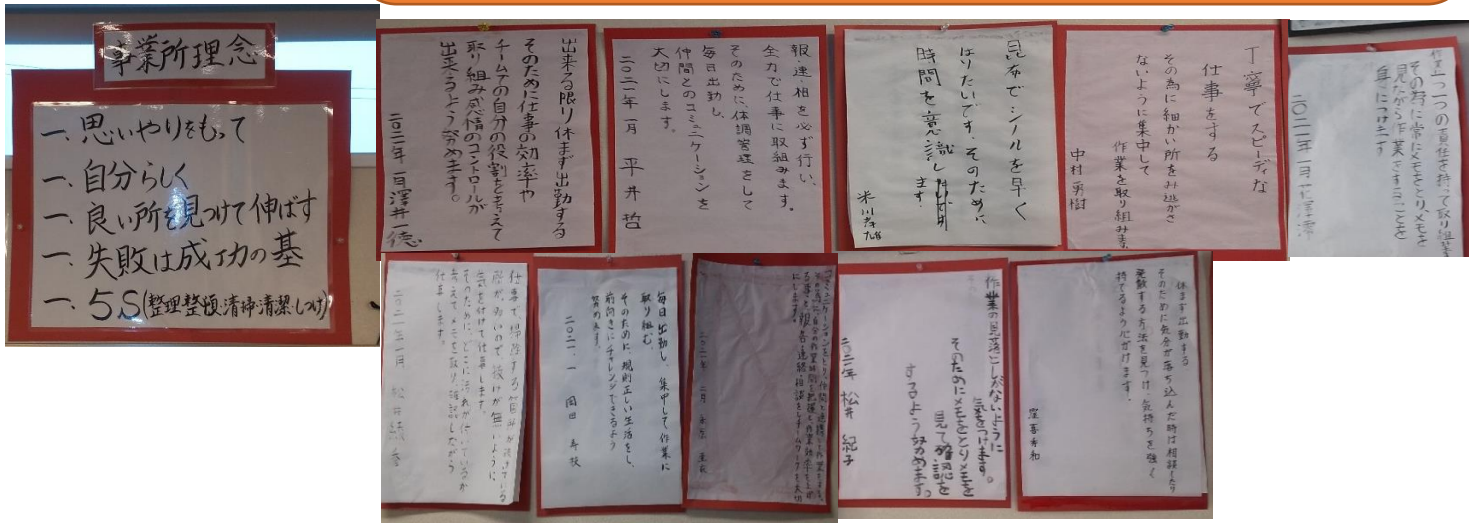 事業所理念
一、思いやりをもって
一、自分らしく
一、良い所を見つけて伸ばす
一、失敗は成功の基
一、5S(整理整頓清掃清潔しつけ)
出来る限り休まず出勤する
そのために仕事の効率や
チームでの自分の役割を考えて
取り組み感情のコントロールが
出来るよう努めます。
二〇二一年一月 澤井一徳
報・連・相を必ず行い、
全力で仕事に取組みます。
そのために、体調管理をして
毎日出勤し、
仲間とのコミュニケーションを
大切にします。
二〇二一年一月 平井哲
昆布でシールを早く
はりたいです。そのために
時間を意識します。
米川
丁寧でスピーディな
仕事をする
その為に細かい所をみ逃がさ
ないように集中して
作業を取り組みます
中村勇樹
一つ一つの責任を持って取り組
その為に常にメモをとりメモを
見ながら作業することを
身につけます
二〇二一年一月
仕事で、掃除する箇所が抜けている
所が多いので抜けが無いように
気を付けて仕事します。
そのために、どこに汚れが付いているのか
考えて、メモを取り、確認しながら
仕事します。
二〇二一年一月 松井
毎日出勤し、集中して作業に
取り組む。
そのために、規則正しい生活をし、
前向きにチャレンジできるよう
努めます。
二〇二一、一 岡田
コミュニケーションをとり仲間と連携して作業をする。
二〇二一年 二月
作業の見落としがないように
気をつけます。
そのためにメモをとりメモを
見て確認を
するよう努めます。
二〇二一年 松井 紀子
休まず出勤する
そのために気分が落ち込んだ時は相談したり
発散する方法を見つけ気持ちを強く
持てるよう心がけます。